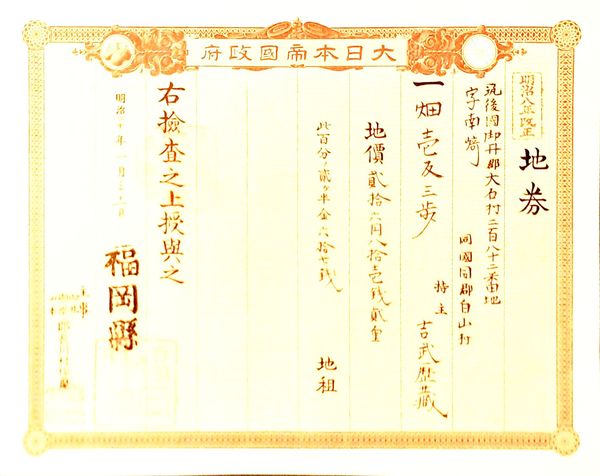 大日本帝國政府
明治八年改正
地券
筑後國御井郡大石村二百八十二番地
字南崎
同國同郡白山村
一畑壱反三歩
持主 吉武歴蔵
地價貳拾六円八拾壱銭貳厘
此百分ノ貳ヶ半金六拾七銭 地租
右撿査之上授與之
明治十年一月
福岡縣